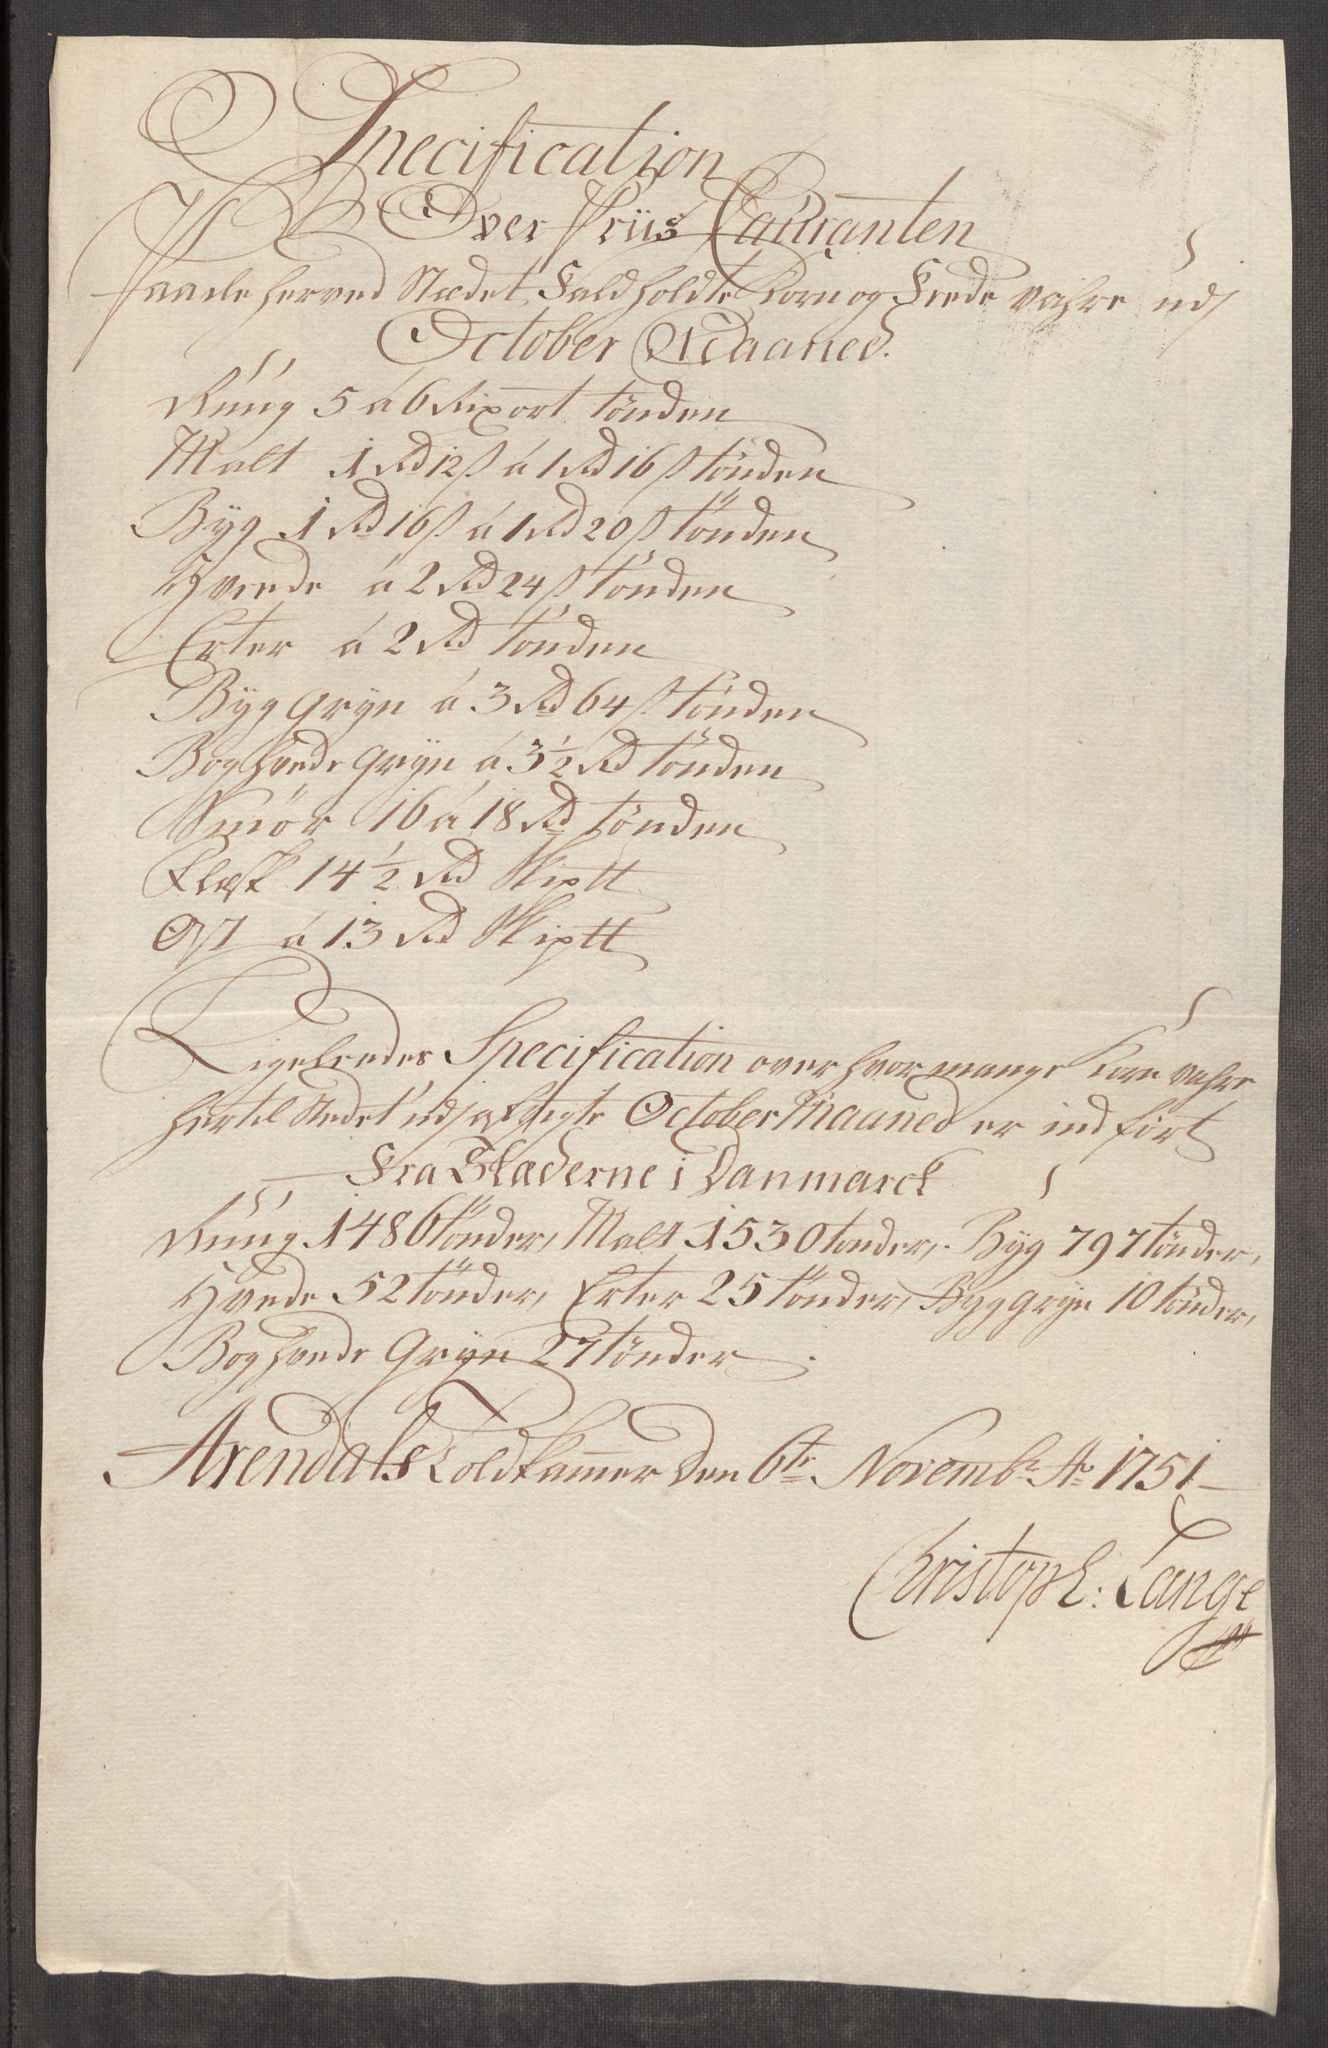 Specification
Over Priis Couranten
Paa de her ved Stædet Fald holdte Korn og Fede vahre udj
October Maaned.
Rúug 5 á 6 Rixort tönden
Malt 1 Rd 12 ß á 1 Rd 16 ß tönden
Byg 1 Rd 16 ß á 1 Rd 20 ß tönden
Hvede á 2 Rd 24 ß tönden
Erter á 2 Rd tönden
Byg gryn á 3 Rd 64 ß tönden
Boghvede gryn á 3½ Rd tönden
Smör 16 á 18 Rd tönden
Flesk 14½ Rd Skiptt
Ost á 13 Rd Skiptt
Ligeledes Specification over hvor mange Korn vahre
hertil Stedet udj October Maaned er indfört
Fra Stæderne i Danmarck
Rúug 1486 tönder, Malt 1530 tönder, Byg 797 tönder,
Hvede 52 tönder, Erter 25 tönder, Byggryn 10 tönder,
Boghvede Gryn 27 tönder.
Arendals Toldkammer den 6te Novembr Ao 1751
Christoph: Lange